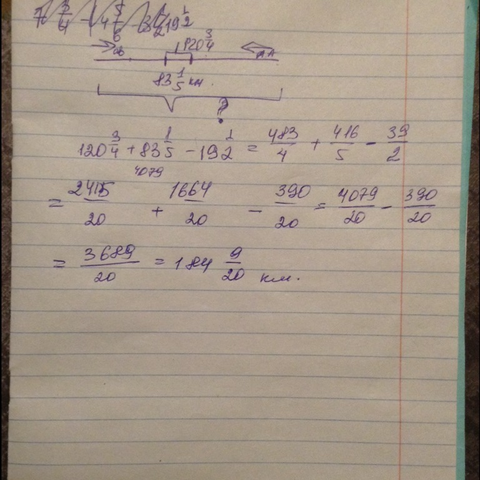 120 3/4
83 1/5 км
?
120 3/4 + 83 1/5 - 19 1/2 = 483/4 + 416/5 - 39/2
4079
= 2415/20 + 1664/20 - 390/20 = 4079/20 - 390/20
= 3689/20 = 184 9/20 км.